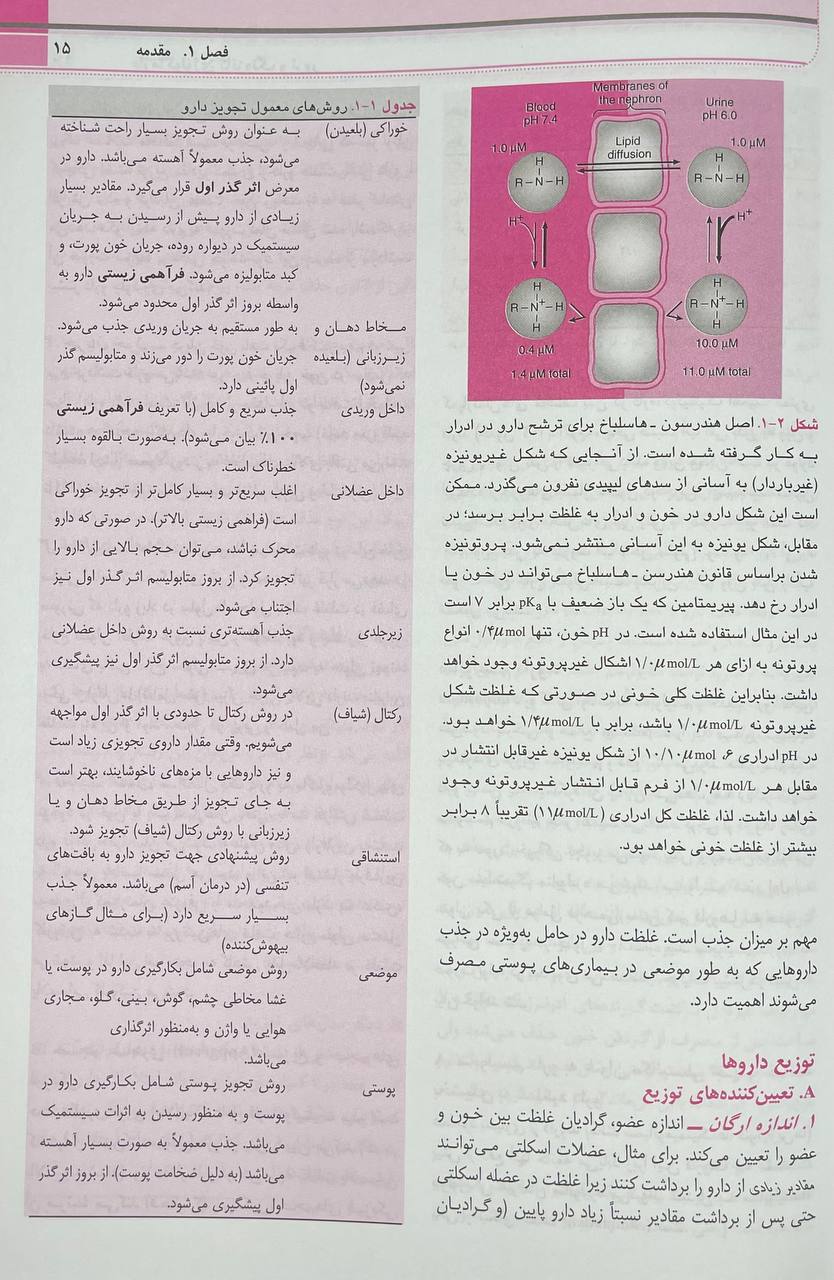 فصل ۱. مقدمه ۱۵
Membranes of
the nephron
Blood
pH 7.4
Urine
pH 6.0
Lipid
diffusion
1.0 μM
1.0 μM
H
R–N–H
H
R–N–H
H+
H+
H
R–N+–H
H
H
R–N+–H
H
0.4 μM
10.0 μM
1.4 μM total
11.0 μM total
شکل ۲-۱. اصل هندرسون ـ هاسلباخ برای ترشح دارو در ادرار
به کار گرفته شده است. از آنجایی که شکل غیریونیزه
(غیرباردار) به آسانی از سدهای لیپیدی نفرون می‌گذرد. ممکن
است این شکل دارو در خون و ادرار به غلظت برابر برسد؛ در
مقابل، شکل یونیزه به این آسانی منتشر نمی‌شود. پروتونیزه
شدن براساس قانون هندرسن ـ هاسلباخ می‌تواند در خون یا
ادرار رخ دهد. پیریمتامین که یک باز ضعیف با pKa برابر ۷ است
در این مثال استفاده شده است. در pH خون، تنها ۰/۴μmol انواع
پروتونه به ازای هر ۱/۰μmol/L اشکال غیرپروتونه وجود خواهد
داشت. بنابراین غلظت کلی خونی در صورتی که غلظت شکل
غیرپروتونه ۱/۰μmol/L باشد، برابر با ۱/۴μmol/L خواهد بود.
در pH ادراری ۶، ۱۰/۱۰μmol از شکل یونیزه غیرقابل انتشار در
مقابل هر ۱/۰μmol/L از فرم قابل انتشار غیرپروتونه وجود
خواهد داشت. لذا، غلظت کل ادراری (۱۱μmol/L) تقریباً ۸ برابر
بیشتر از غلظت خونی خواهد بود.
مهم بر میزان جذب است. غلظت دارو در حامل به‌ویژه در جذب
داروهایی که به طور موضعی در بیماری‌های پوستی مصرف
می‌شوند اهمیت دارد.
توزیع داروها
A. تعیین‌کننده‌های توزیع
۱. اندازه ارگان ـــ اندازه عضو، گرادیان غلظت بین خون و
عضو را تعیین می‌کند. برای مثال، عضلات اسکلتی می‌توانند
مقادیر زیادی از دارو را برداشت کنند زیرا غلظت در عضله اسکلتی
حتی پس از برداشت مقادیر نسبتاً زیاد دارو پایین (و گرادیان
جدول ۱-۱. روش‌های معمول تجویز دارو
خوراکی (بلعیدن) به عنوان روش تجویز بسیار راحت شناخته
می‌شود، جذب معمولاً آهسته می‌باشد. دارو در
معرض اثر گذر اول قرار می‌گیرد. مقادیر بسیار
زیادی از دارو پیش از رسیدن به جریان
سیستمیک در دیواره روده، جریان خون پورت، و
کبد متابولیزه می‌شود. فرآهمی زیستی دارو به
واسطه بروز اثر گذر اول محدود می‌شود.
مخاط دهان و به طور مستقیم به جریان وریدی جذب می‌شود.
زیرزبانی (بلعیده جریان خون پورت را دور می‌زند و متابولیسم گذر
نمی‌شود) اول پائینی دارد.
داخل وریدی جذب سریع و کامل (با تعریف فرآهمی زیستی
۱۰۰٪ بیان می‌شود). به‌صورت بالقوه بسیار
خطرناک است.
داخل عضلانی اغلب سریع‌تر و بسیار کامل‌تر از تجویز خوراکی
است (فراهمی زیستی بالاتر). در صورتی که دارو
محرک نباشد، می‌توان حجم بالایی از دارو را
تجویز کرد. از بروز متابولیسم اثر گذر اول نیز
اجتناب می‌شود.
زیرجلدی جذب آهسته‌تری نسبت به روش داخل عضلانی
دارد. از بروز متابولیسم اثر گذر اول نیز پیشگیری
می‌شود.
رکتال (شیاف) در روش رکتال تا حدودی با اثر گذر اول مواجهه
می‌شویم. وقتی مقدار داروی تجویزی زیاد است
و نیز داروهایی با مزه‌های ناخوشایند، بهتر است
به جای تجویز از طریق مخاط دهان و یا
زیرزبانی با روش رکتال (شیاف) تجویز شود.
استنشاقی روش پیشنهادی جهت تجویز دارو به بافت‌های
تنفسی (در درمان آسم) می‌باشد. معمولاً جذب
بسیار سریع دارد (برای مثال گازهای
بیهوش‌کننده)
موضعی روش موضعی شامل بکارگیری دارو در پوست، یا
غشا مخاطی چشم، گوش، بینی، گلو، مجاری
هوایی یا واژن و به‌منظور اثرگذاری
می‌باشد.
پوستی روش تجویز پوستی شامل بکارگیری دارو در
پوست و به منظور رسیدن به اثرات سیستمیک
می‌باشد. جذب معمولاً به صورت بسیار آهسته
می‌باشد (به دلیل ضخامت پوست). از بروز اثر گذر
اول پیشگیری می‌شود.